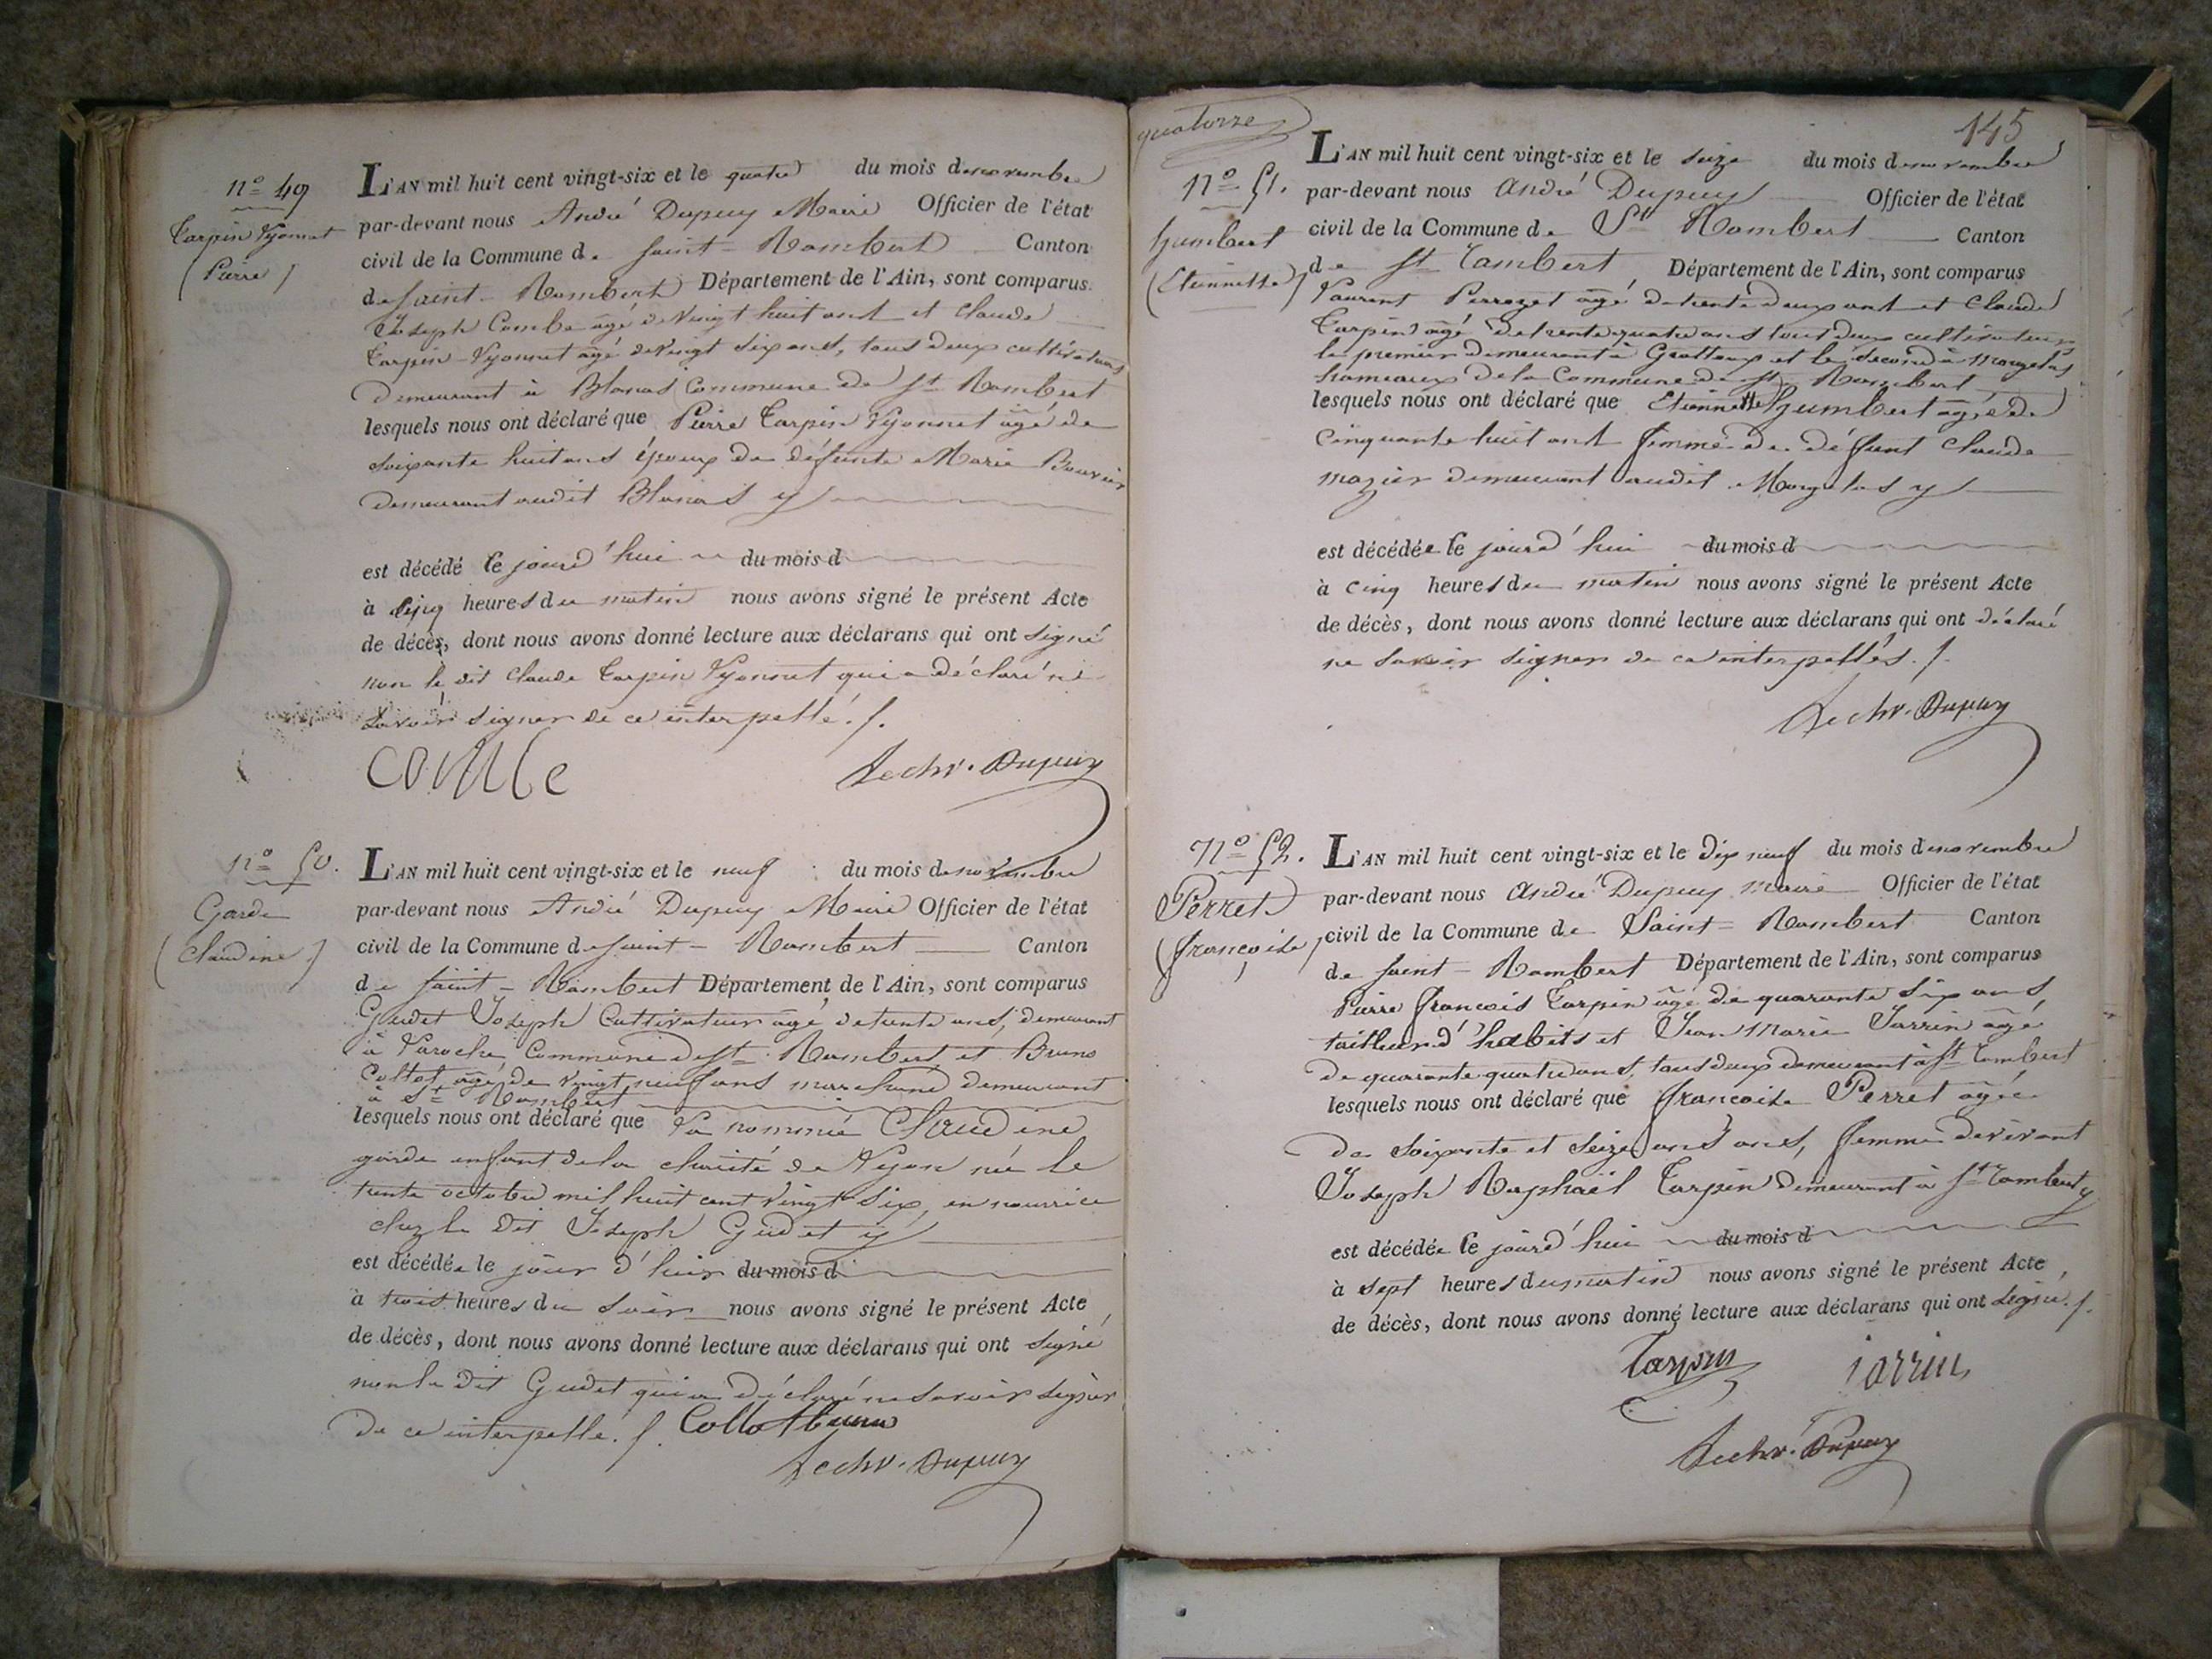 nº 49
Tarpin Vyonnet
(Pierre)
L'AN mil huit cent vingt-six et le quatre du mois de novembre
par-devant nous André Dupuy Maire Officier de l'état
civil de la Commune de Saint-Rambert Canton
de Saint-Rambert Département de l'Ain, sont comparus
Joseph Combe âgé de vingt huit ans et Claude
Tarpin-Vyonnet âgé de vingt six ans, tous deux cultivateurs
demeurant à Blanas Commune de St Rambert
lesquels nous ont déclaré que Pierre Tarpin Vyonnet âgé de
soixante huit ans époux de défunte Marie Bouvier
demeurant audit Blanas y
est décédé ce jourd'hui du mois d
à cinq heures du matin nous avons signé le présent Acte
de décès, dont nous avons donné lecture aux déclarans qui ont signé
non le dit Claude Tarpin Vyonnet qui a déclaré ne
savoir signer de ce interpellé.
combe
Dupuy
nº 50.
Garde
(Claudine)
L'AN mil huit cent vingt-six et le neuf du mois de novembre
par-devant nous André Dupuy Maire Officier de l'état
civil de la Commune de Saint-Rambert Canton
de Saint-Rambert Département de l'Ain, sont comparus
Gudet Joseph Cultivateur âgé de trente ans, demeurant
à Varoche Commune de St Rambert et Bruno
Collot âgé de vingt neuf ans marchand demeurant
à St Rambert
lesquels nous ont déclaré que la nommée Claudine
garde enfant de la charité de Lyon née le
trente octobre mil huit cent vingt six, en nourrice
chez le dit Joseph Gudet y
est décédée le jour d'hier du mois d
à trois heures du soir nous avons signé le présent Acte
de décès, dont nous avons donné lecture aux déclarans qui ont signé
non le dit Gudet qui a déclaré ne savoir signer
de ce interpellé. Collot bruno
Dupuy
quatorze
145
nº 51.
humbert
(Etiennette)
L'AN mil huit cent vingt-six et le seize du mois de novembre
par-devant nous André Dupuy Officier de l'état
civil de la Commune de St Rambert Canton
de St Rambert Département de l'Ain, sont comparus
Laurent Perrozet âgé de trente deux ans et Claude
Tarpin âgé de trente quatre ans tous deux cultivateurs
le premier demeurant à Grattoux et le second à Morgelas
hameaux de la Commune de St Rambert
lesquels nous ont déclaré que Etiennette humbert âgée de
Cinquante huit ans femme de déffunt Claude
mazier demeurant audit Morgelas y
est décédée ce jourd'hui du mois d
à cinq heures du matin nous avons signé le présent Acte
de décès, dont nous avons donné lecture aux déclarans qui ont déclaré
ne savoir signer de ce interpellés.
Dupuy
nº 52.
Perret
(françoise)
L'AN mil huit cent vingt-six et le dix neuf du mois de novembre
par-devant nous André Dupuy maire Officier de l'état
civil de la Commune de Saint-Rambert Canton
de Saint-Rambert Département de l'Ain, sont comparus
Pierre françois Tarpin âgé de quarante six ans
tailleur d'habits et Jean Marie Jarrin âgé
de quarante quatre ans, tous deux demeurant à St Rambert
lesquels nous ont déclaré que françoise Perret âgée
de soixante et seize ans ans, femme de vivant
Joseph Raphaël Tarpin demeurant à St Rambert y
est décédée ce jourd'hui du mois d
à sept heures du matin nous avons signé le présent Acte
de décès, dont nous avons donné lecture aux déclarans qui ont signé.
Tarpin jarrin
Dupuy